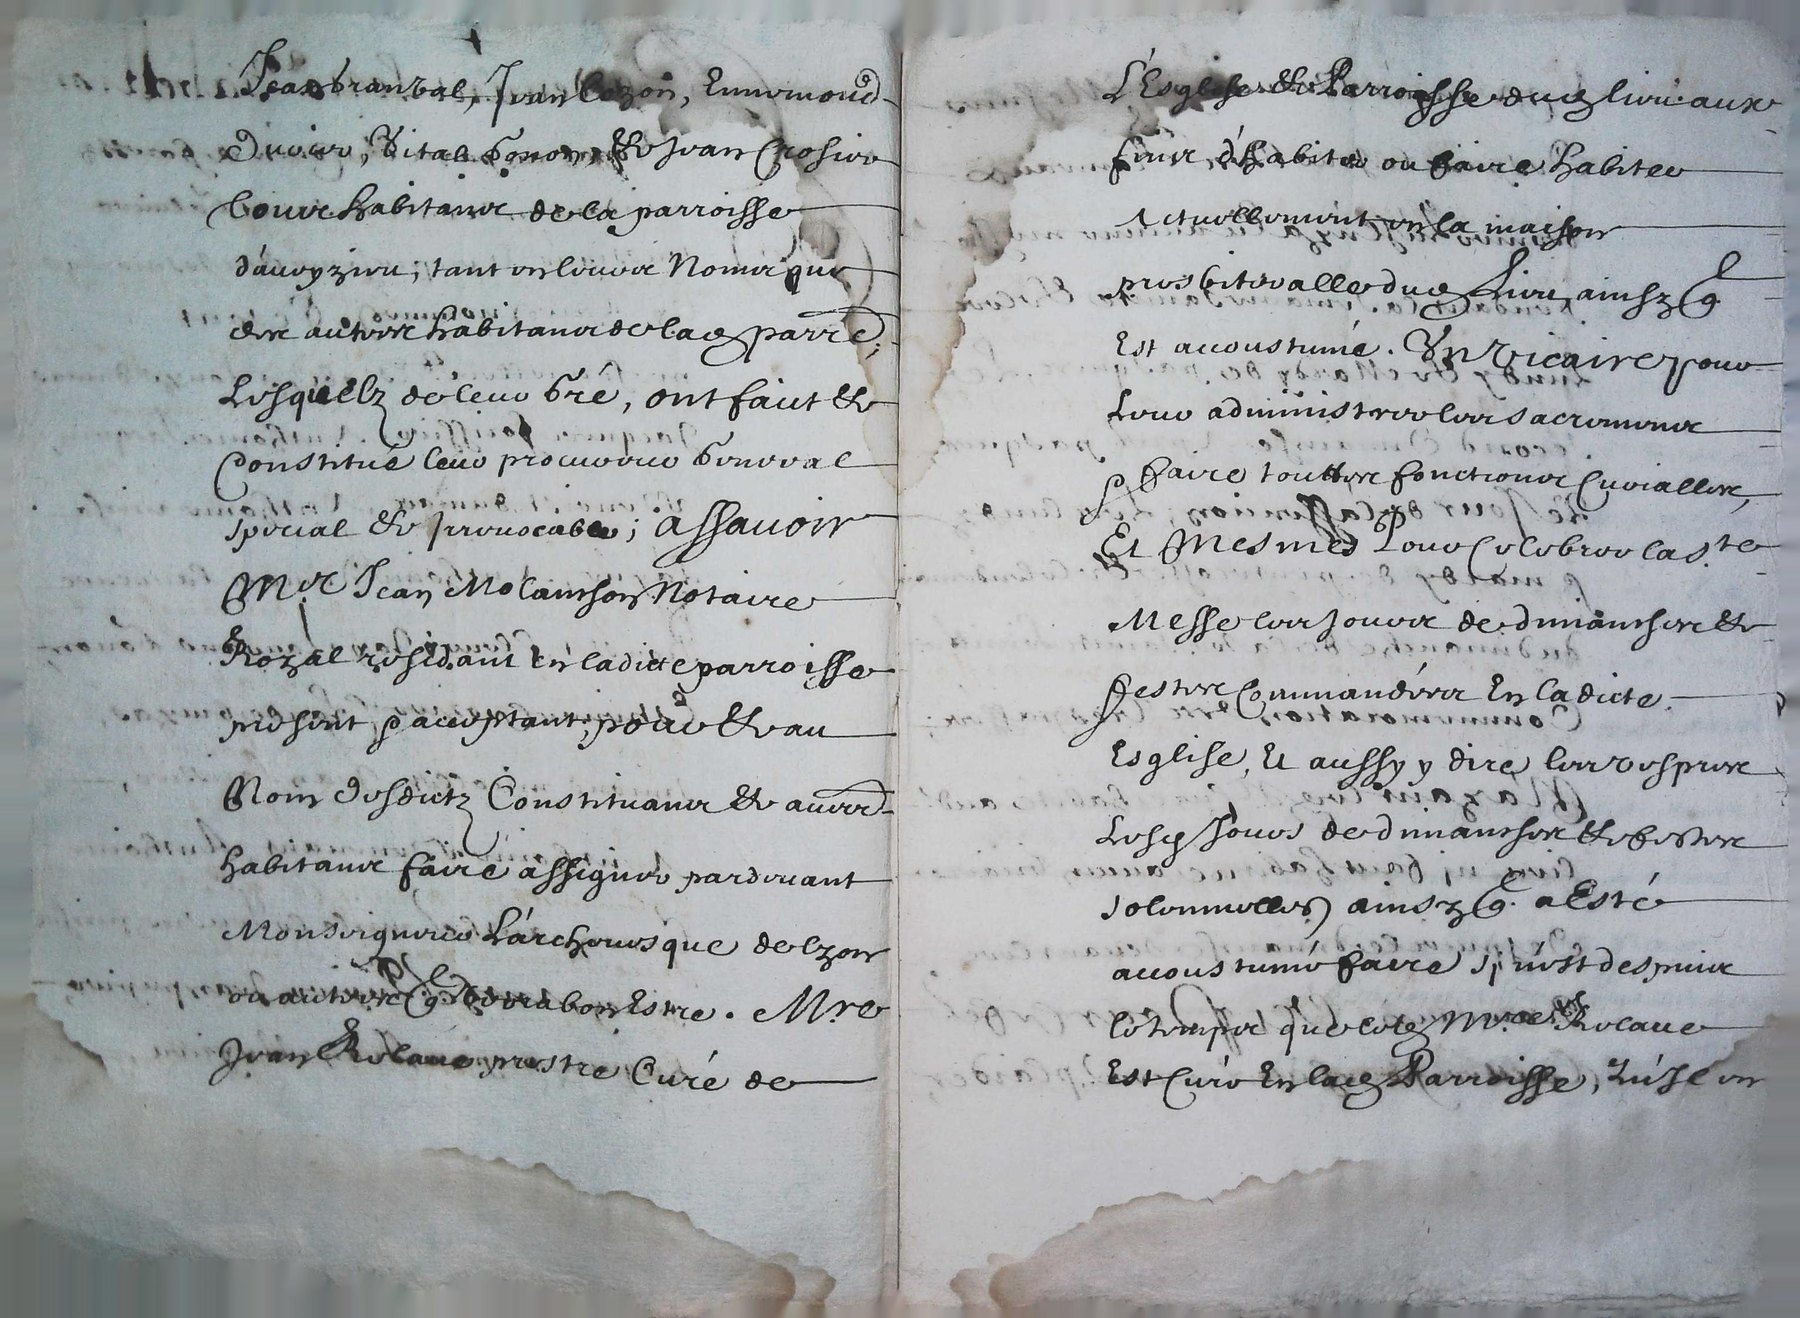 Jean branbal, Jean Cozon, Ennemond
Duvivr, Vital bonon, & Jean Crosier
tous habitans de la parroisse
d'aveyzieu; tant en leurs Noms que
des autres habitans de lad parre;
Lesquelz de leur gré, ont faict &
Constitué leur procureur general
special & jrrevocable; assavoir
Mre Jean Molainson Notaire
Rozal residant en ladicte parroisse
present & acceptant, pour & au
Nom desdictz Constituans & autres
habitans faire assigner pardevant
Monseigneur L'archevesque de lzon
ou autres q verra bon Estre. Mre
Jean prestre Curé de
L'Esglise & Parroisse dud lieu aux
fins d'habiter ou faire habiter
Actuellement en la maison
presbiteralle dud Lieu, ainsz q
Est accoustumé. Vn Vicaire pour
Leur administrer les sacremens
& faire touttes fonctions Curialles,
Et Mesmes Pour Celebrer la ste
Messe les jours de dimanches &
festes Commandées En ladicte
Esglise, Et aussy y dire les vespres
Lesd Jours de dimanches & festes
solemnelles, ainsz q. a Esté
accoustumé faire, & n'est despuis
le temps que led Mre
Est Curé En lad Parroisse, Qu'Jl en